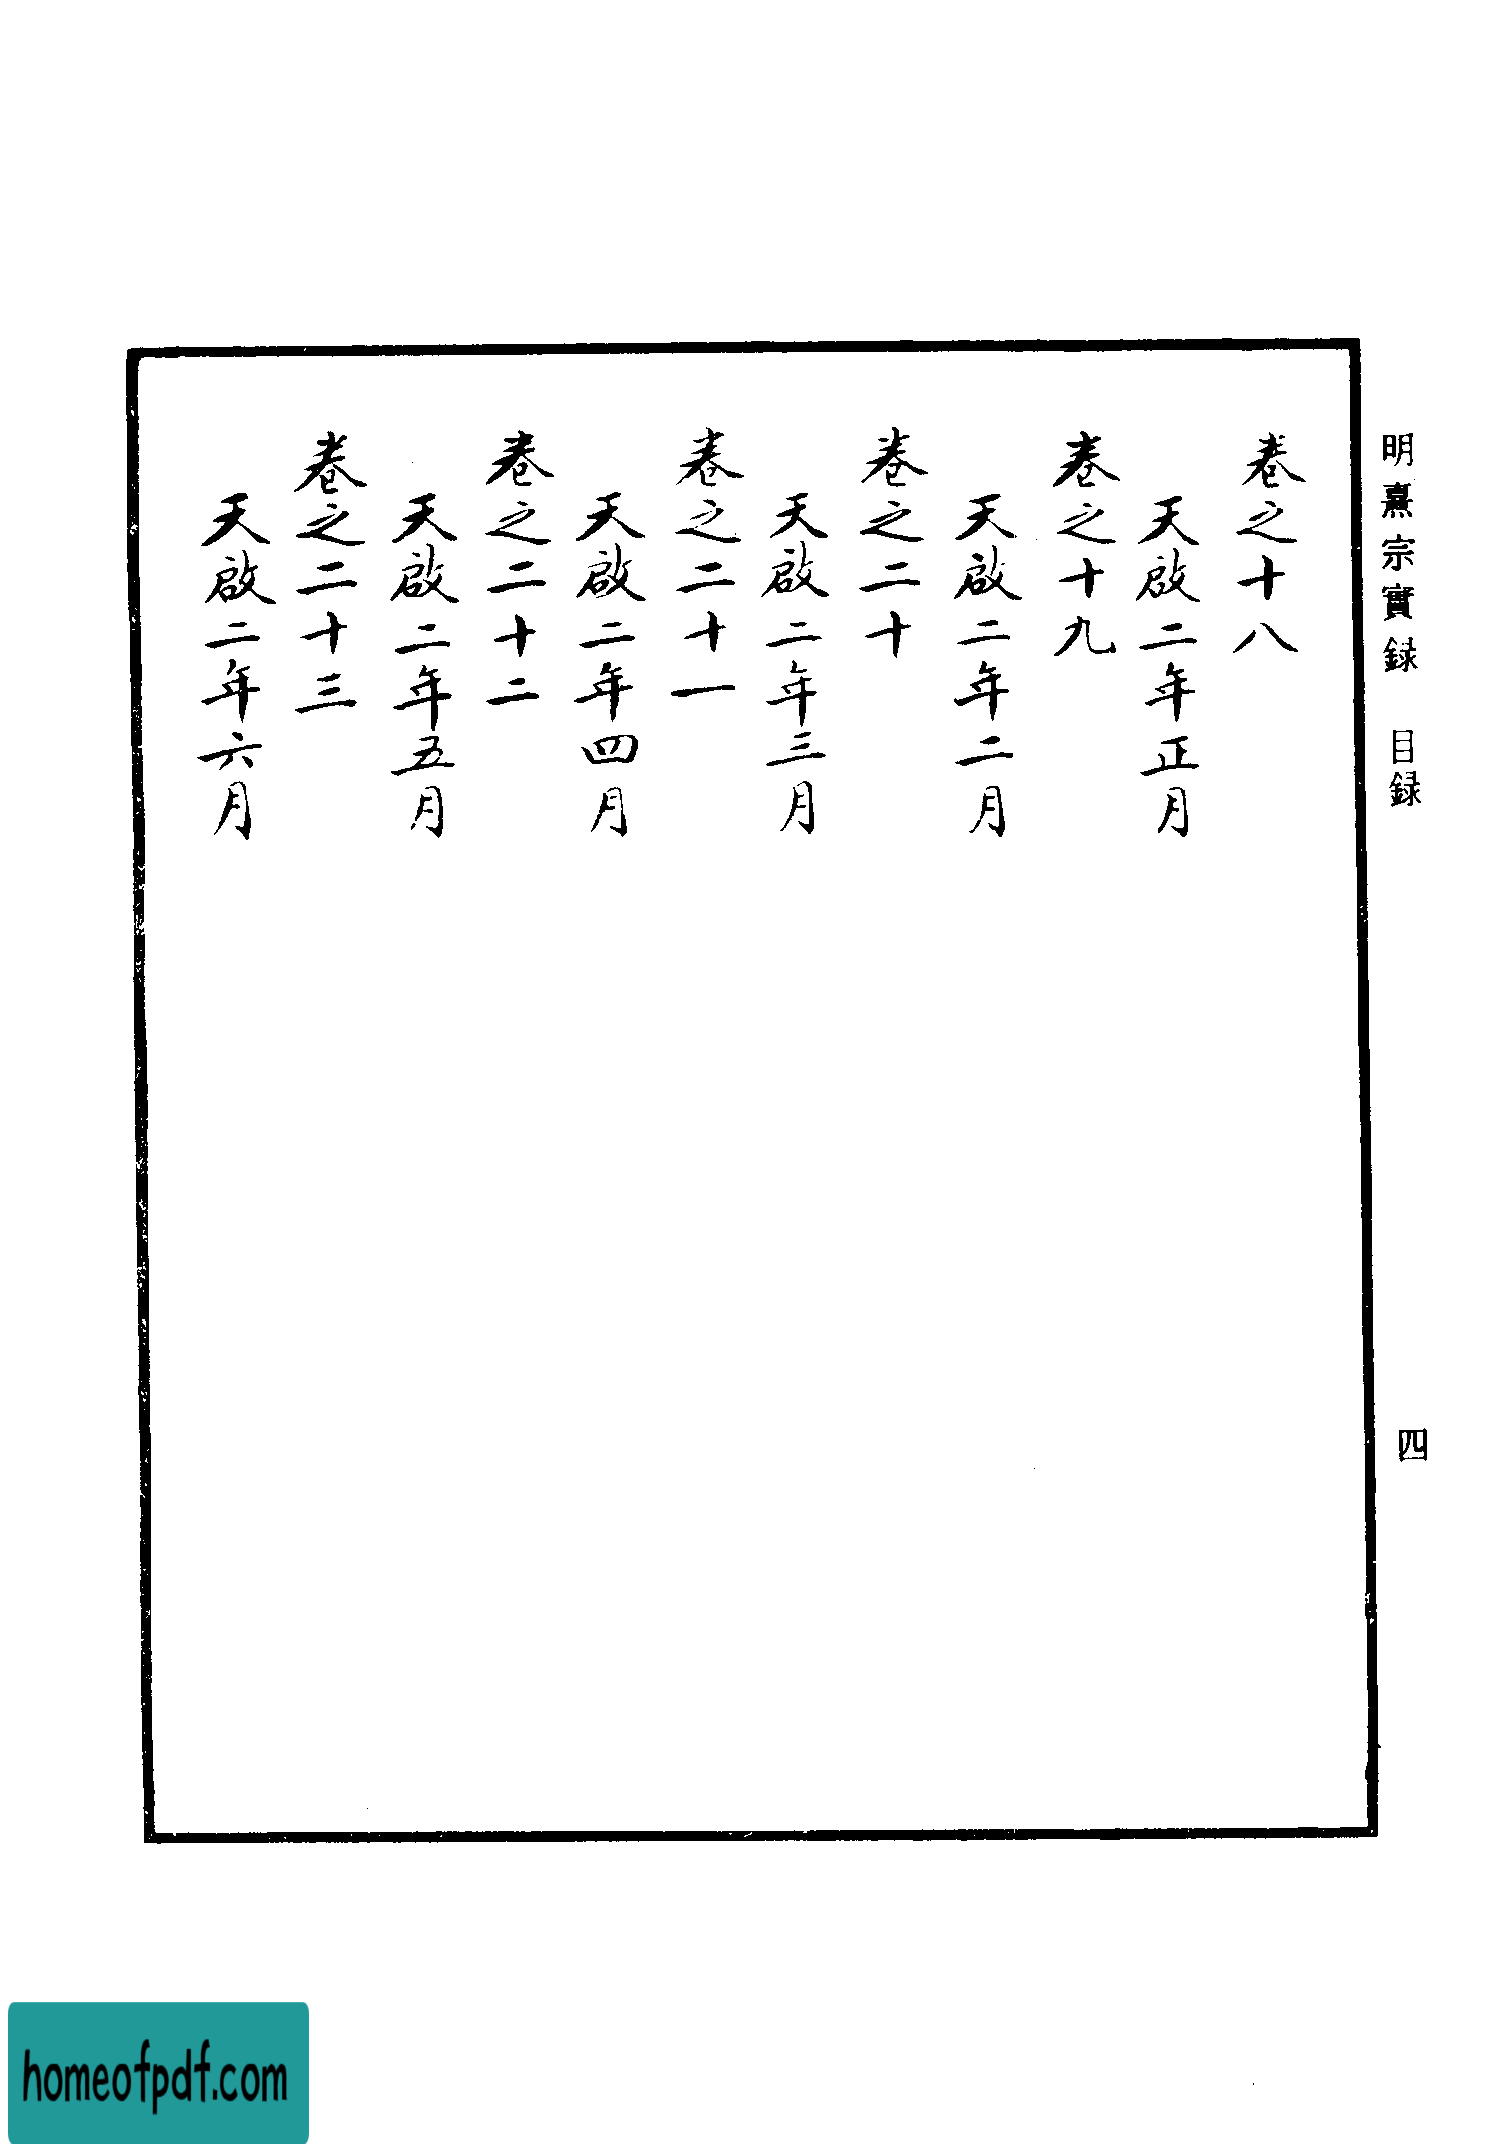 明熹宗實録　目録
四
卷之十八
天啟二年正月
卷之十九
天啟二年二月
卷之二十
天啟二年三月
卷之二十一
天啟二年四月
卷之二十二
天啟二年五月
卷之二十三
天啟二年六月
homeofpdf.com